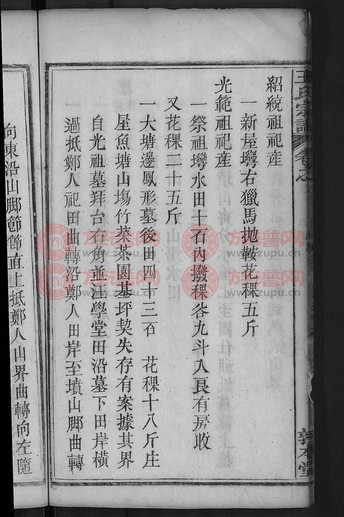 王氏宗譜 卷之
紹統祖祀產
一新屋塆右獵馬拋鞍花稞五斤
光範祖祀產
一祭祖塆水田十石內撥稞谷九斗入長有房收
又花稞二十五斤
一大塘邊鳳形墓後田四十三石 花稞十八斤庄
屋魚塘山塲竹菜茶園基坪契失存有案據其業
自光祖墓拜台石角直注學堂田沿墓下田岸橫
過抵鄭人祀田曲轉沿鄭人田岸至墳山脚曲轉
向東沿山脚節節直上抵鄭人山界曲轉向左隨
敦本堂
族譜网
www.zupu.cn